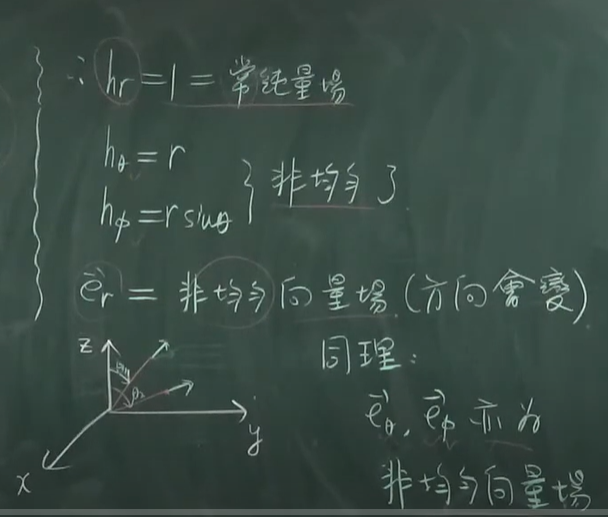 ∴ hr = 1 = 常純量場
hθ = r
hφ = r sinθ } 非均勻了
e⃗r = 非均勻向量場 (方向會變)
同理：
e⃗θ, e⃗φ 亦為
非均勻向量場
z
y
x